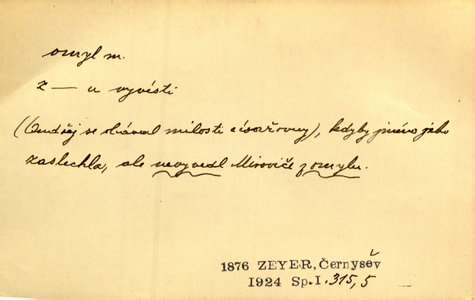 omyl m.
z — u vyvésti
(Ondřej se obával milosti císařovny), kdyby jméno jeho
zaslechla, ale nevyvedl Miroviče z omylu.
1876 ZEYER, Černyšev
1924 Sp.I.315,5